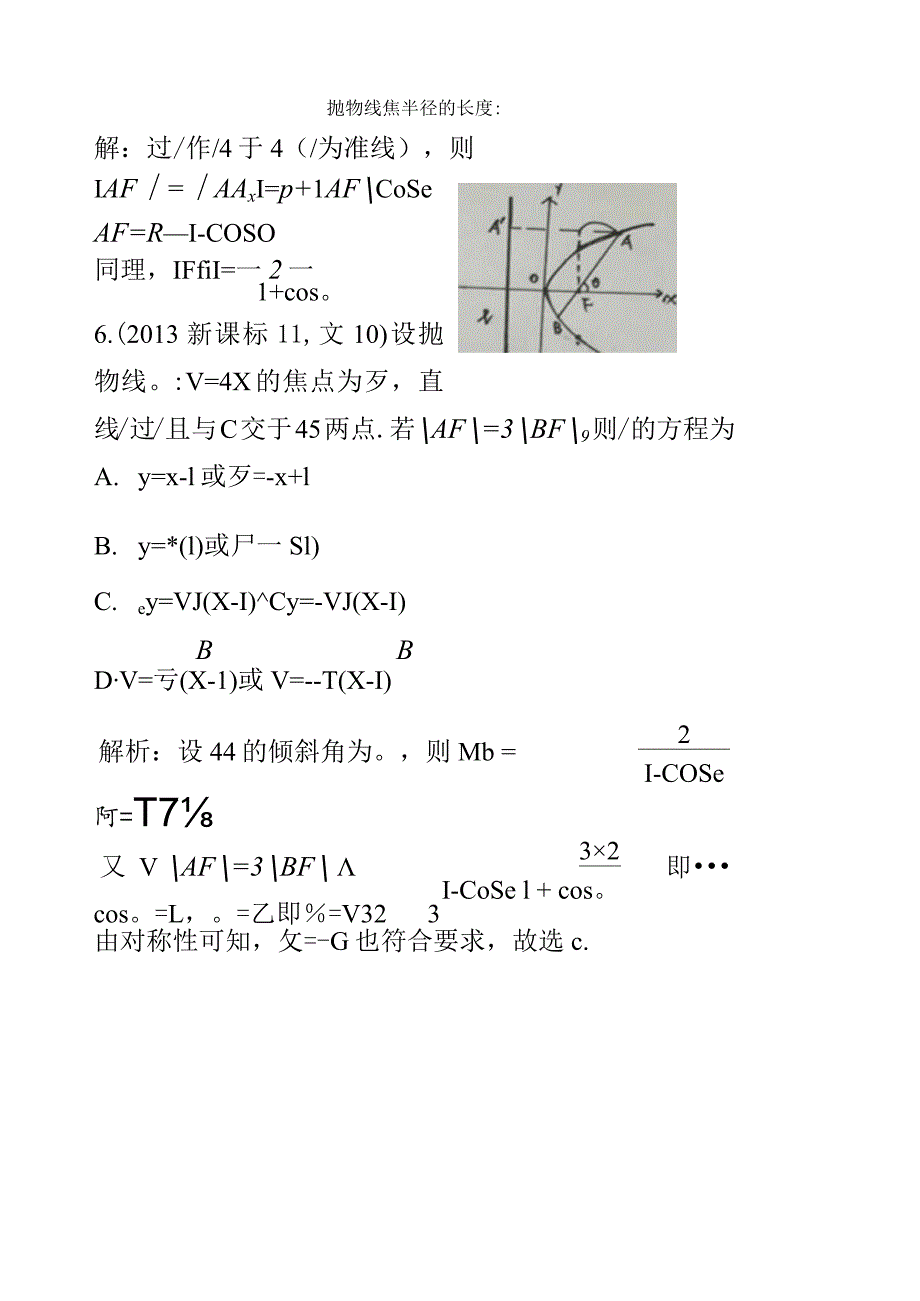 抛物线焦半径的长度:
解：过/作/4于4（/为准线），则
IAF｜=｜AAxI=p+1AF\CoSe
AF=R—I-COSO
同理，IFfiI=一2一
1+cos。
Y
A'
A
O
θ
F
X
B
l
6.(2013新课标11,文10)设抛
物线。:V=4X的焦点为歹，直
线/过/且与C交于45两点.若\AF\=3\BF\9则/的方程为
A. y=x-l或歹=-x+l
B. y=*(l)或尸一Sl)
C. ey=VJ(X-I)^Cy=-VJ(X-I)
B B
D·V=亏(X-1)或V=--T(X-I)
解析：设44的倾斜角为。，则Mb=
2
I-COSe
阿=T7⅛
又 V \AF\=3\BF\ Λ 3×2 即•••
I-CoSe l + cos。
cos。=L，。=乙即%=V32 3
由对称性可知，攵=-G也符合要求，故选c.